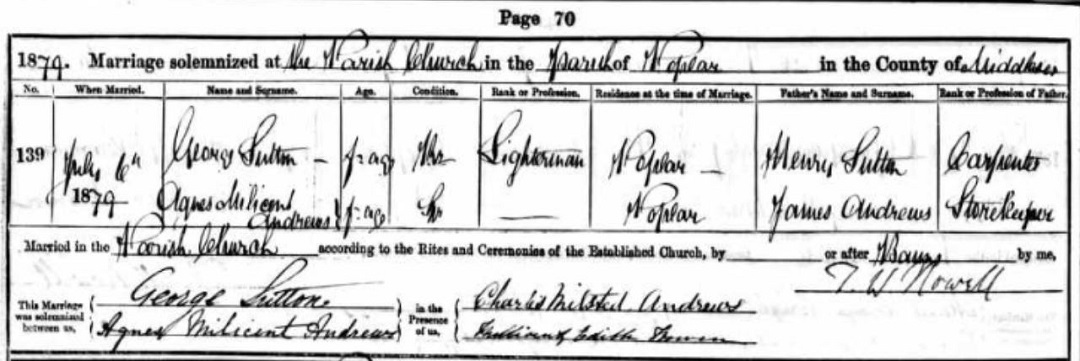 Page 70
1879. Marriage solemnized at the Parish Church in the Parish of Poplar in the County of Middlesex
No. When Married. Name and Surname. Age. Condition. Rank or Profession. Residence at the time of Marriage. Father's Name and Surname. Rank or Profession of Father.
139 July 6th George Sutton f. age Lighterman Poplar Henry Sutton Carpenter
1879 Agnes Milicent Andrews f. age Sp Poplar James Andrews Storekeeper
Married in the Parish Church according to the Rites and Ceremonies of the Established Church, by or after Banns by me,
T. W. Nowell
This Marriage was solemnized between us, George Sutton in the Presence of us, Charles Milsted Andrews
Agnes Milicent Andrews Edith